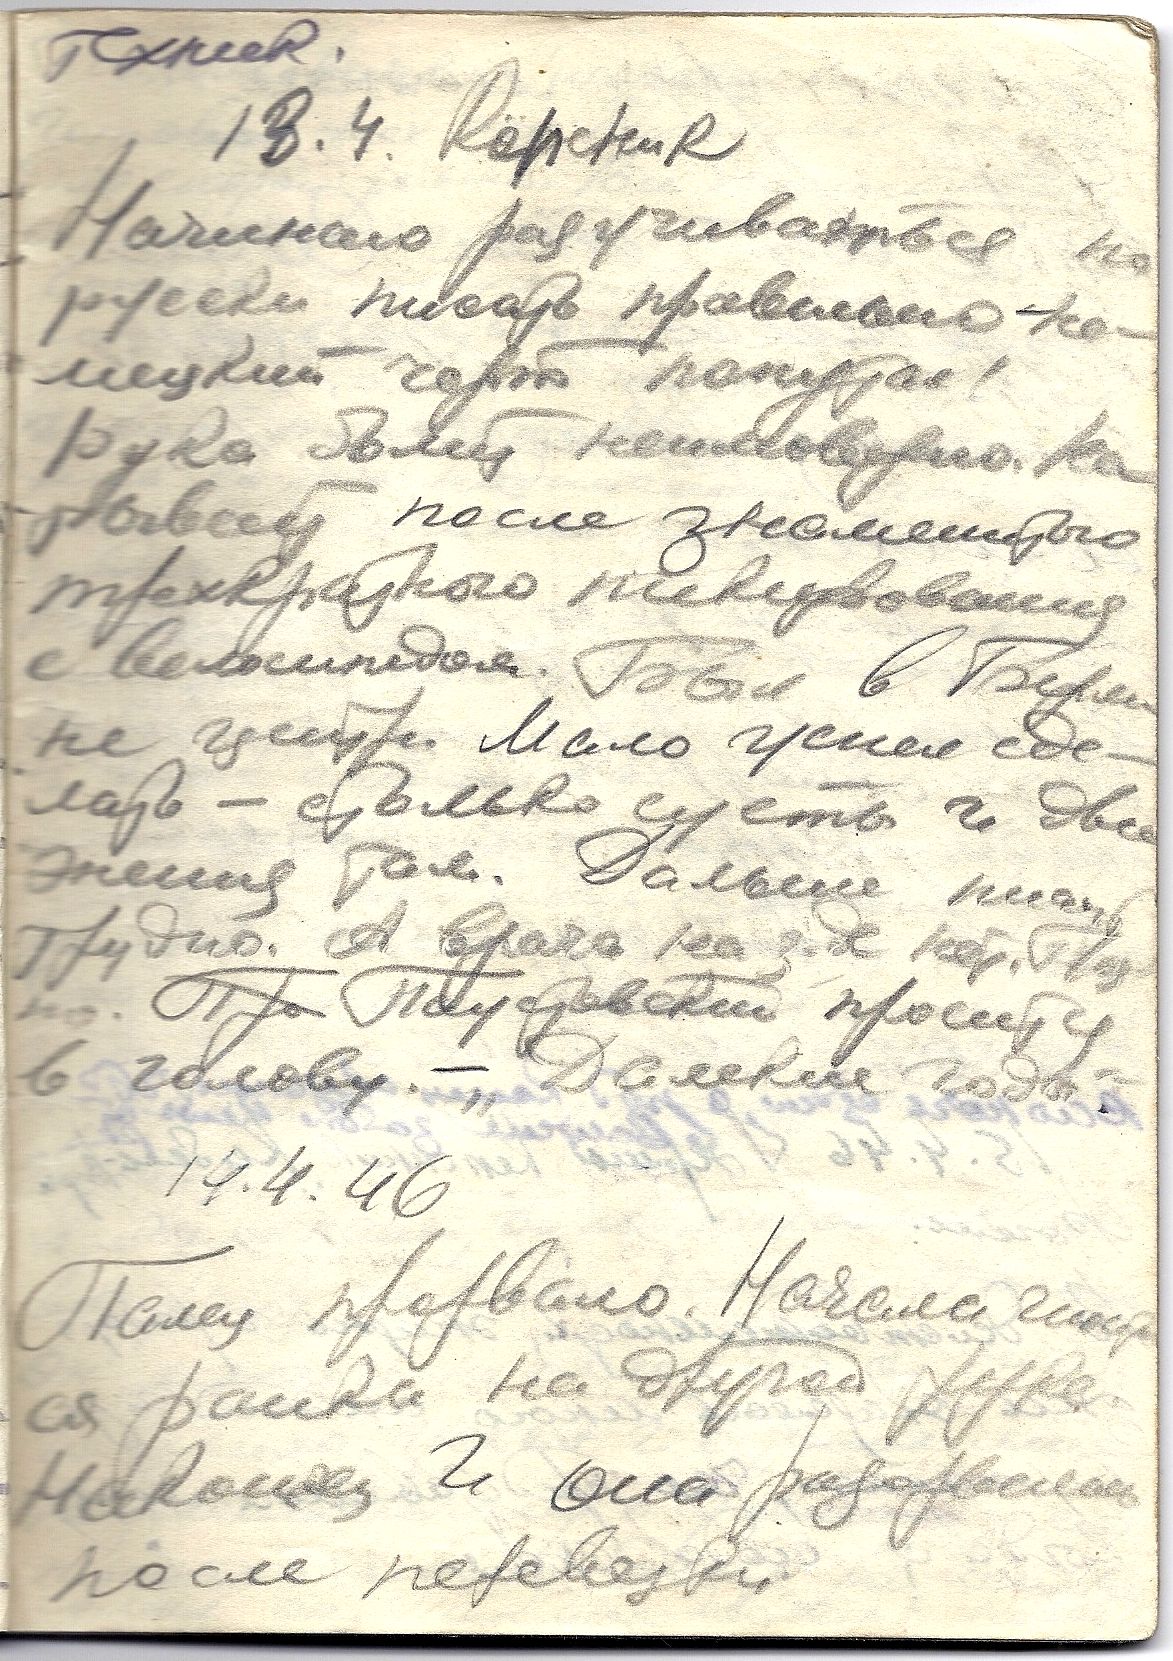 техник.
13.4. Кöпеник
Начинаю разучиваться по
русски писать правильно – не-
мецкий черт попутал!
Рука болит неимоверно. На-
рывает после знаменитого
трехкратного пикирования
с велосипедом. Был в Берли-
не центр. Мало успел сде-
лать – столько суеты и дви
жения там. Дальше писать
трудно. А врача на з-де нет. Позд
но. Про Паустовский просится
в голову. – „Далекие годы“.
14.4.46
Палец прорвало. Начала гноить
ся ранка на другой руке.
Наконец и она разорвалась
после перевязки